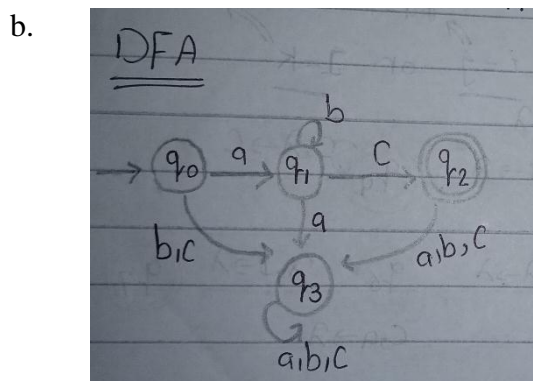 b.
DFA
b
q0 a q1 c q2
a
b,c a,b,c
q3
a,b,c